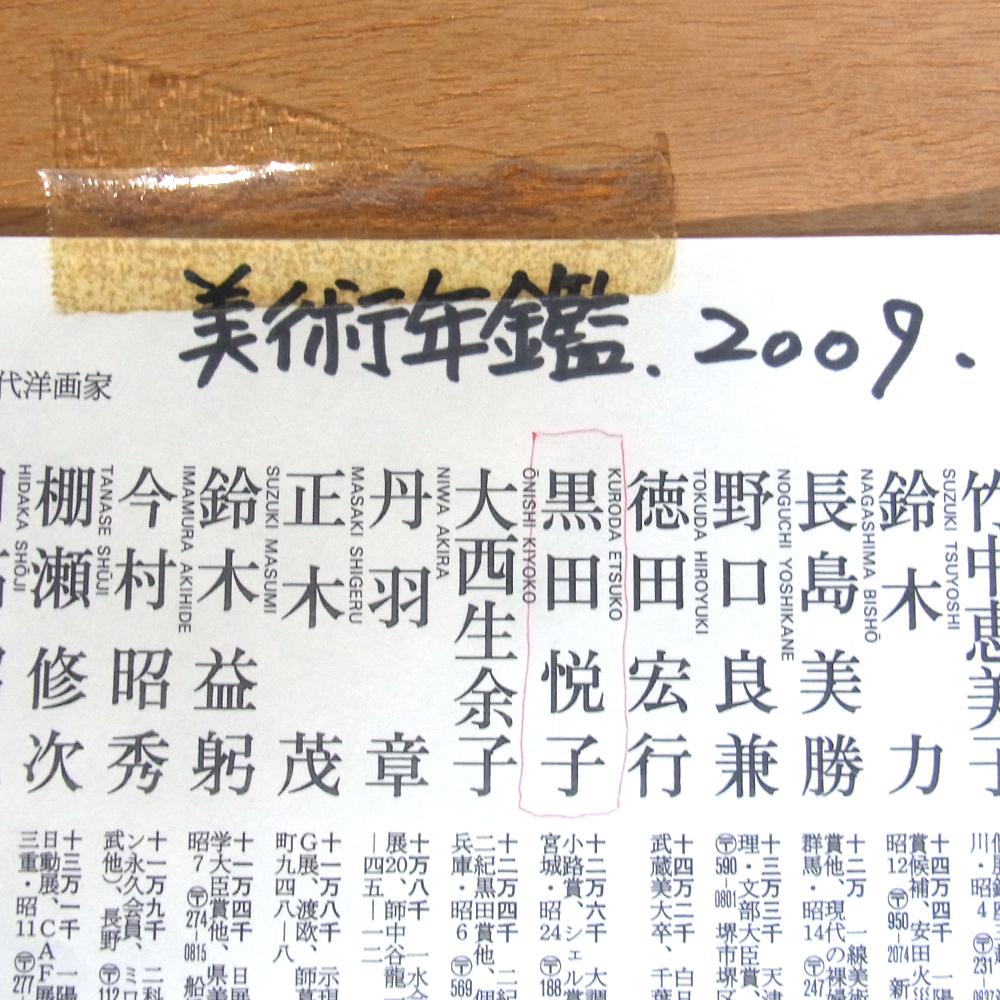 美術年鑑.2009.
代洋画家
竹中恵美子
SUZUKI TSUYOSHI
鈴木 力
十四万四千 一陽
賞候補、安田火災
昭12 〒950-2074 新
NAGASHIMA BISHŌ
長島美勝
一線美術
賞他、現代の裸婦
群馬・昭14 〒247
NOGUCHI YOSHIKANE
野口良兼
十三万五千 天津
理・文部大臣賞、
〒590-0801 堺市堺区
TOKUDA HIROYUKI
徳田宏行
十四万二千 白日
武蔵美大卒、千葉
KURODA ETSUKO
黒田悦子
十二万六千 大調
小路賞、シェル賞
宮城・昭24 〒188
ŌNISHI KIYOKO
大西生余子
十二万四千 二紀
二紀黒田賞他、個
兵庫・昭6 〒569
NIWA AKIRA
丹羽 章
十万八千 一水会
展20、師中谷龍一
―四五―一二
MASAKI SHIGERU
正木 茂
十一万八千 示現
G展、渡欧、師
町九四八―八
SUZUKI MASUMI
鈴木益躬
十一万四千 日展
学大臣賞他、県美
昭7 〒274-0815 船
IMAMURA AKIHIDE
今村昭秀
十一万九千 二科
ン永久会員、ミロ
武他)、長野 〒112
TANASE SHŪJI
棚瀬修次
十三万一千 一陽
日動展、CAF展
三重・昭11 〒277
HIDAKA SHŌJI